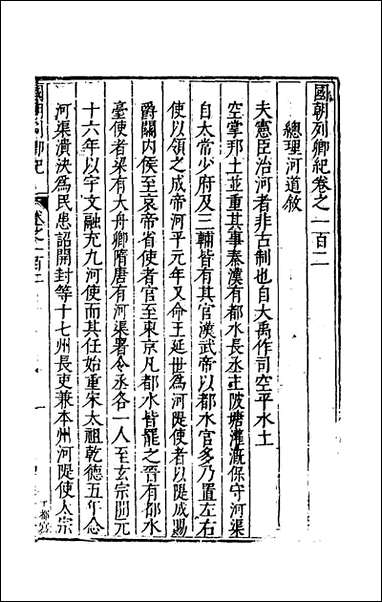 國朝列卿紀卷之一百二
總理河道敘
夫憲臣治河者非古制也自大禹作司空平水土
空掌邦土並重其事秦漢有都水長丞主陂塘灌溉保守河渠
自太常少府及三輔皆有其官漢武帝以都水官多乃置左右
使以領之成帝河平元年又命王延世爲河隄使者以隄成賜
爵關内侯至哀帝省使者官至東京凡都水皆罷之晉有都水
臺使者梁有大舟卿隋唐有河渠署令丞各一人至玄宗開元
十六年以宇文融充九河使而其任始重宋太祖乾德五年念
河渠潰決爲民患詔開封等十七州長吏兼本州河隄使太宗
國朝列卿紀
卷之一百二
一